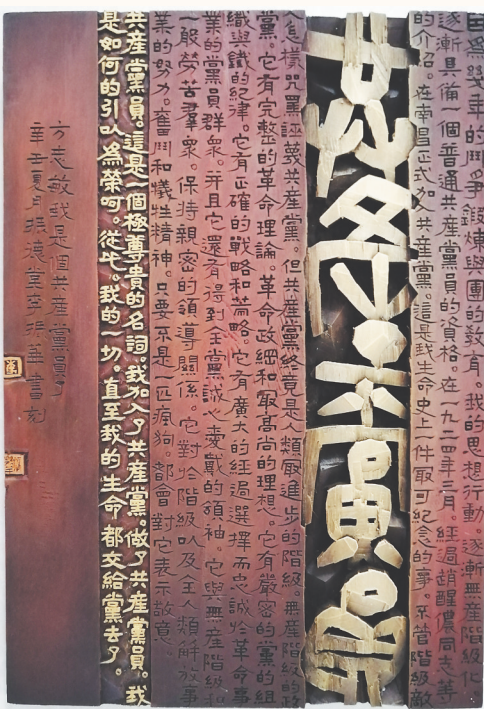 因為幾年的鬥爭鍛煉與團的教育。我的思想行動。逐漸無產階級化
逐漸具備一個普通共產黨員的資格。在一九二四年三月。經過趙醒儂同志等
的介紹。在南昌正式加入共產黨。這是我生命史上一件最可紀念的事。不管階級敵
人怎樣咒罵誣衊共產黨。但共產黨終竟是人類最進步的階級。無產階級的政
黨。它有完整的革命理論。革命政綱和最高尚的理想。它有嚴密的黨的組
織與鐵的紀律。它有正確的戰略和策略。它有廣大的經過選擇而忠誠於革命事
業的黨員群衆。并且它還有得到全黨誠心愛戴的領袖。它與無產階級和
一般勞苦羣衆。保持親密的領導關係。它對於階級以及全人類解放事
業的努力。奮鬥和犧牲精神。只要不是一匹瘋狗。都會對它表示敬意
共產黨員。這是一個極尊貴的名詞。我加入了共產黨。做了共產黨員。我
是如何的引以為榮呵。從此。我的一切。直至我的生命都交給黨去了。
方志敏我是個共產黨員了
辛丑夏月振德堂李振華書刻